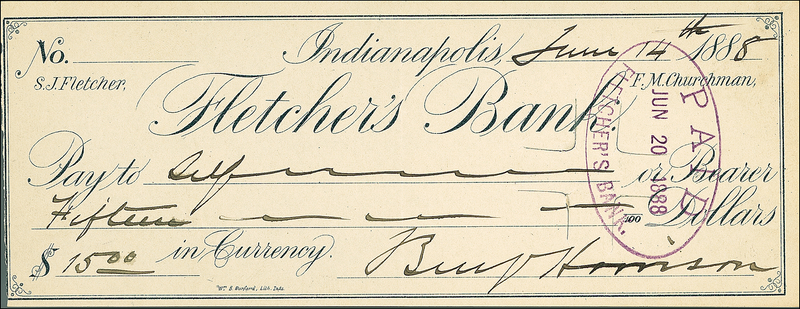 No. Indianapolis, June 14th 1888
S.J. Fletcher, F.M. Churchman,
Fletcher's Bank,
Pay to Self or Bearer
Fifteen /100 Dollars
$ 15 00 in Currency. Benj Harrison
Wm. B. Burford, Lith. Inds.
PAID
JUN 20 1888
FLETCHER'S BANK.